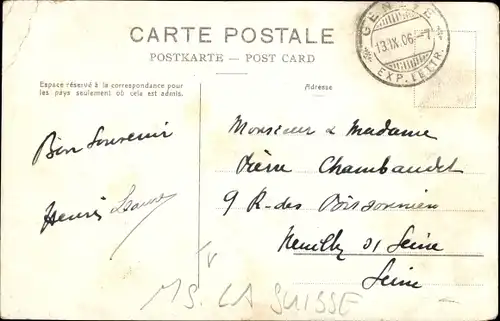 CARTE POSTALE
POSTKARTE — POST CARD
Espace réservé à la correspondance pour
les pays seulement où cela est admis.
Adresse
GENÈVE
13.IX.06.-7
EXP. LETTR.
Bon Souvenir
Henri
Monsieur & Madame
Pierre Chambaudet
9 R. des Poissonniers
Neuilly s/ Seine
Seine
MS. LA SUISSE